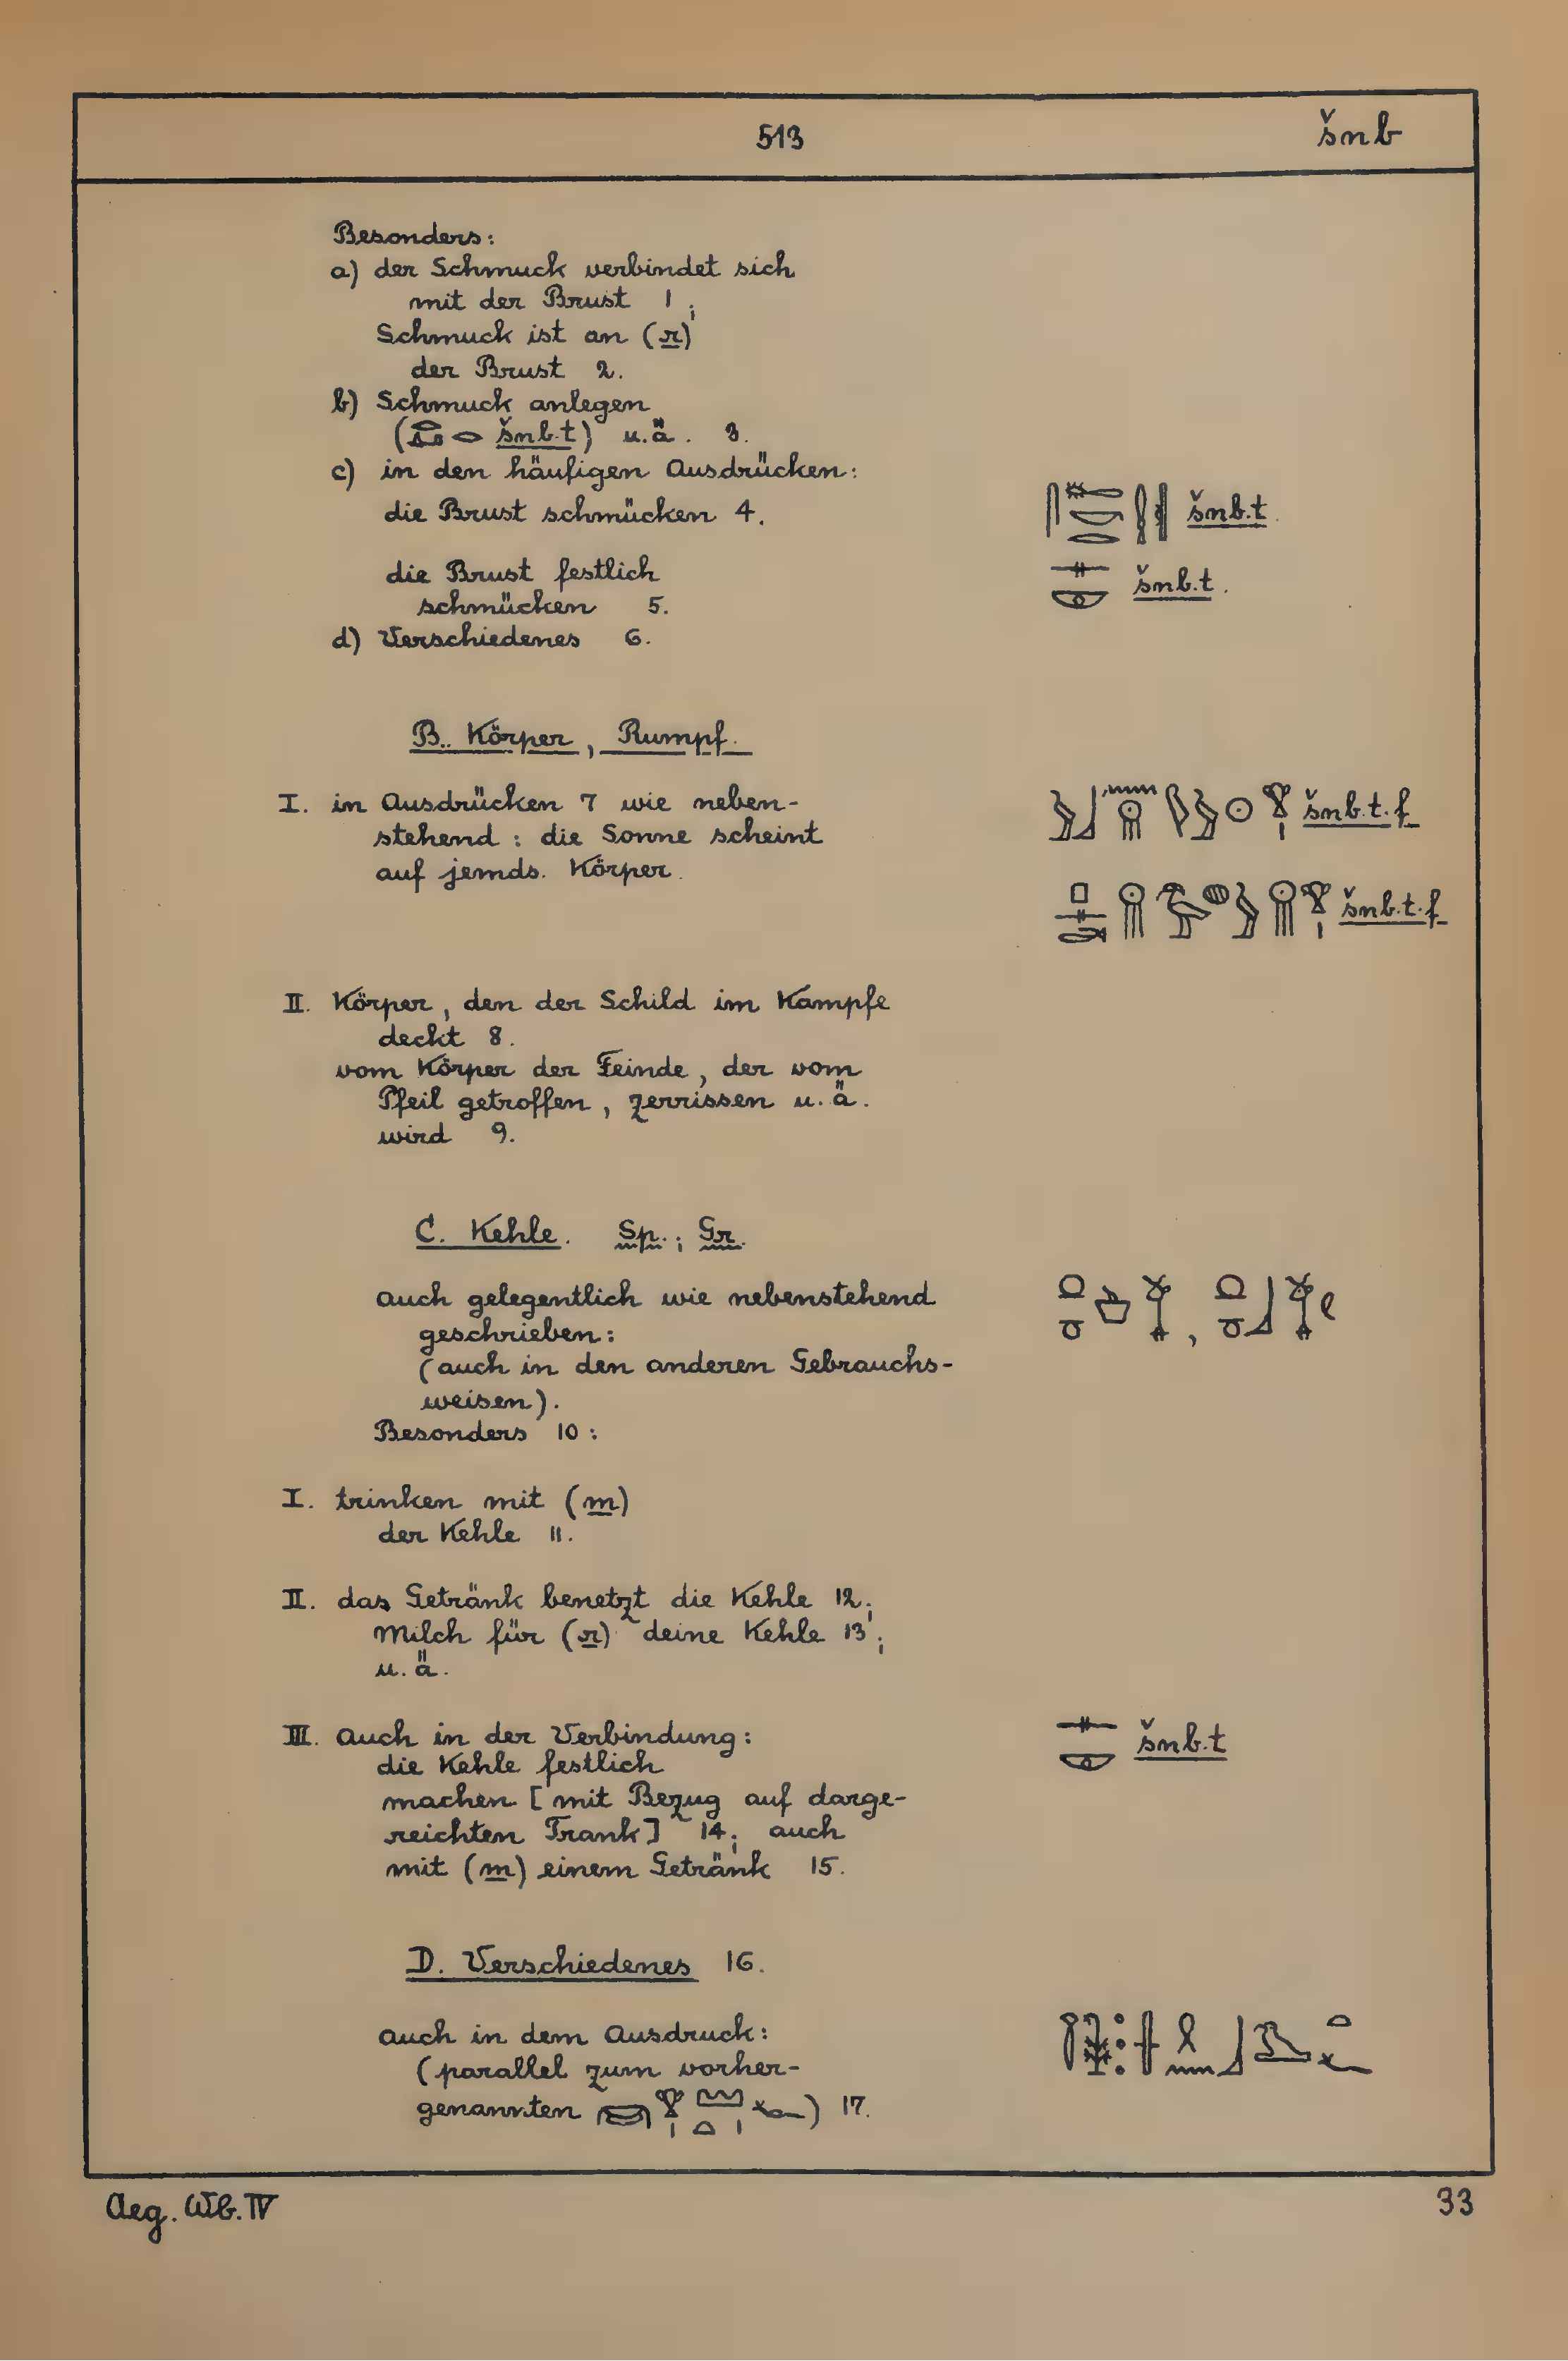 513 šnb
Besonders:
a) der Schmuck verbindet sich
mit der Brust 1;
Schmuck ist an (r)
der Brust 2.
b) Schmuck anlegen
( šnb.t) u.ä. 3.
c) in den häufigen Ausdrücken:
die Brust schmücken 4. šnb.t.
die Brust festlich
schmücken 5. šnb.t.
d) Verschiedenes 6.
B. Körper, Rumpf.
I. in Ausdrücken 7 wie neben-
stehend: die Sonne scheint šnb.t.f
auf jemds. Körper.
šnb.t.f
II. Körper, den der Schild im Kampfe
deckt 8.
vom Körper der Feinde, der vom
Pfeil getroffen, zerrissen u.ä.
wird 9.
C. Kehle. Sp.; Gr.
auch gelegentlich wie nebenstehend
geschrieben:
(auch in den anderen Gebrauchs-
weisen).
Besonders 10:
I. trinken mit (m)
der Kehle 11.
II. das Getränk benetzt die Kehle 12;
Milch für (r) deine Kehle 13;
u.ä.
III. auch in der Verbindung: šnb.t
die Kehle festlich
machen [mit Bezug auf darge-
reichten Trank] 14; auch
mit (m) einem Getränk 15.
D. Verschiedenes 16.
auch in dem Ausdruck:
(parallel zum vorher-
genannten ) 17.
Aeg. Wb. IV 33